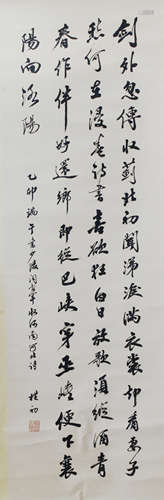 劍外忽傳收薊北初聞涕淚滿衣裳却看妻子
愁何在漫卷詩書喜欲狂白日放歌須縱酒青
春作伴好還鄉即從巴峽穿巫峽便下襄
陽向洛陽
乙卯端午書少陵聞官軍收河南河北詩
樸初